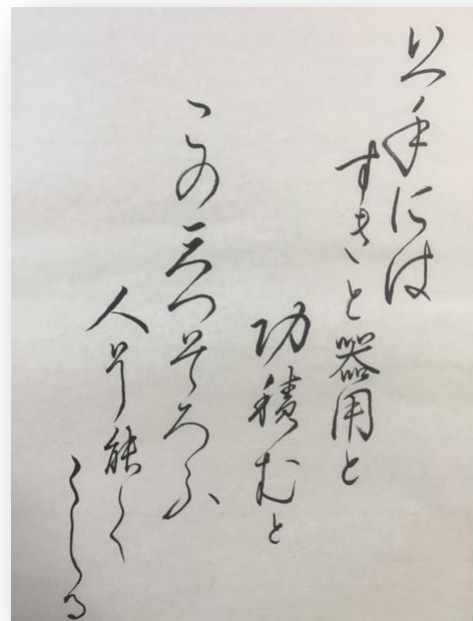 上手には
すきと器用と
功積むと
この三つそろふ
人そ能く
しる